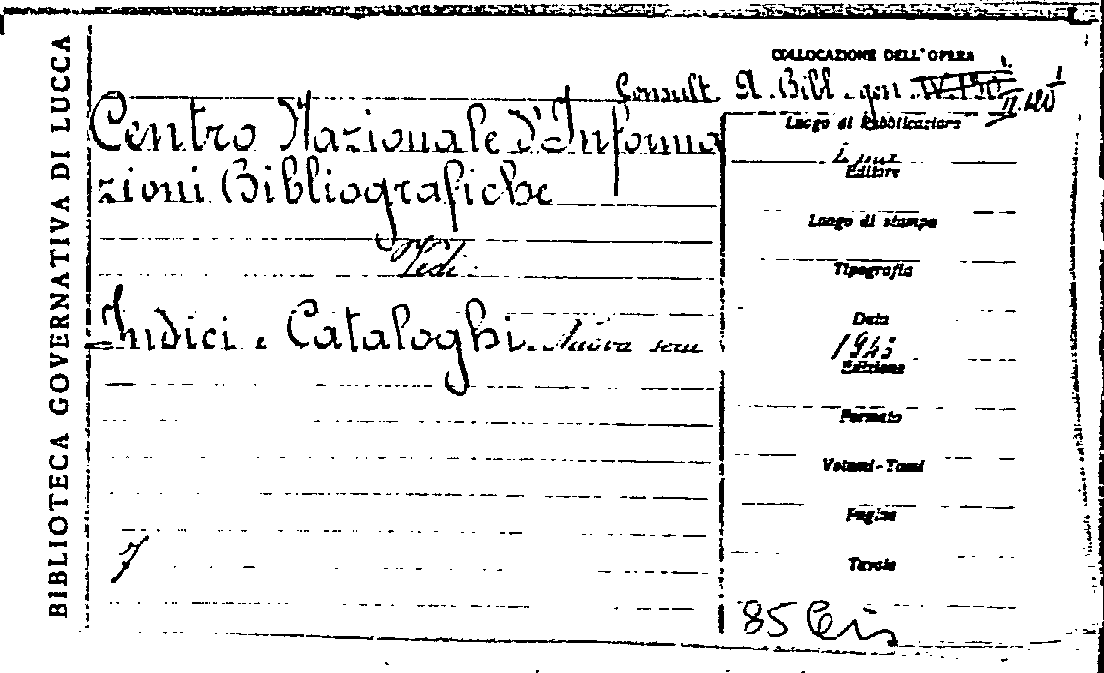 BIBLIOTECA GOVERNATIVA DI LUCCA
COLLOCAZIONE DELL'OPERA
Consult. A. Bibl. gen.
Centro Nazionale d'Informa
zioni Bibliografiche
Vedi
Indici e Cataloghi. Nuova serie
Luogo di Pubblicazione
Editore
Luogo di stampa
Tipografia
Data
1943
Edizione
Formato
Volumi-Tomi
Pagine
Tavole
85 Bis